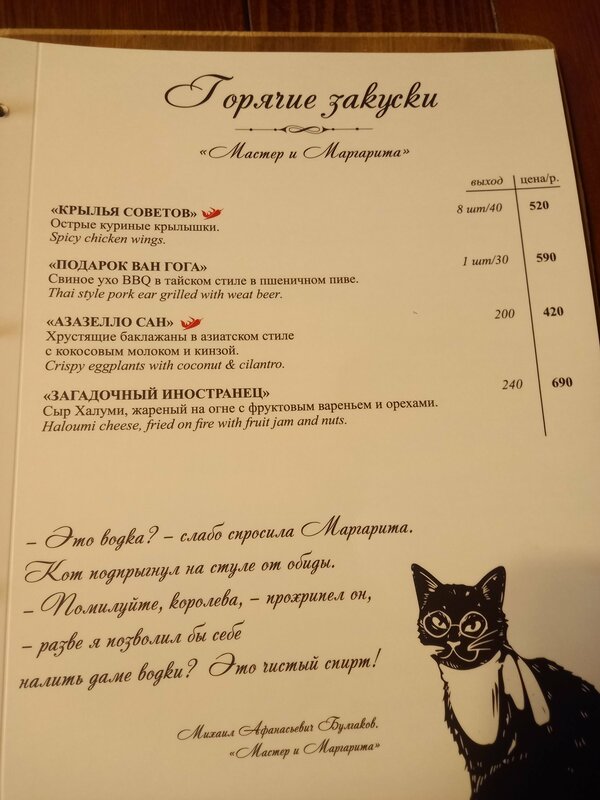 Горячие закуски
«Мастер и Маргарита»
выход цена/р.
«КРЫЛЬЯ СОВЕТОВ» 8 шт/40 520
Острые куриные крылышки.
Spicy chicken wings.
«ПОДАРОК ВАН ГОГА» 1 шт/30 590
Свиное ухо BBQ в тайском стиле в пшеничном пиве.
Thai style pork ear grilled with weat beer.
«АЗАЗЕЛЛО САН» 200 420
Хрустящие баклажаны в азиатском стиле
с кокосовым молоком и кинзой.
Crispy eggplants with coconut & cilantro.
«ЗАГАДОЧНЫЙ ИНОСТРАНЕЦ» 240 690
Сыр Халуми, жареный на огне с фруктовым вареньем и орехами.
Haloumi cheese, fried on fire with fruit jam and nuts.
– Это водка? – слабо спросила Маргарита.
Кот подпрыгнул на стуле от обиды.
– Помилуйте, королева, – прохрипел он,
– разве я позволил бы себе
налить даме водки? Это чистый спирт!
Михаил Афанасьевич Булгаков.
«Мастер и Маргарита»